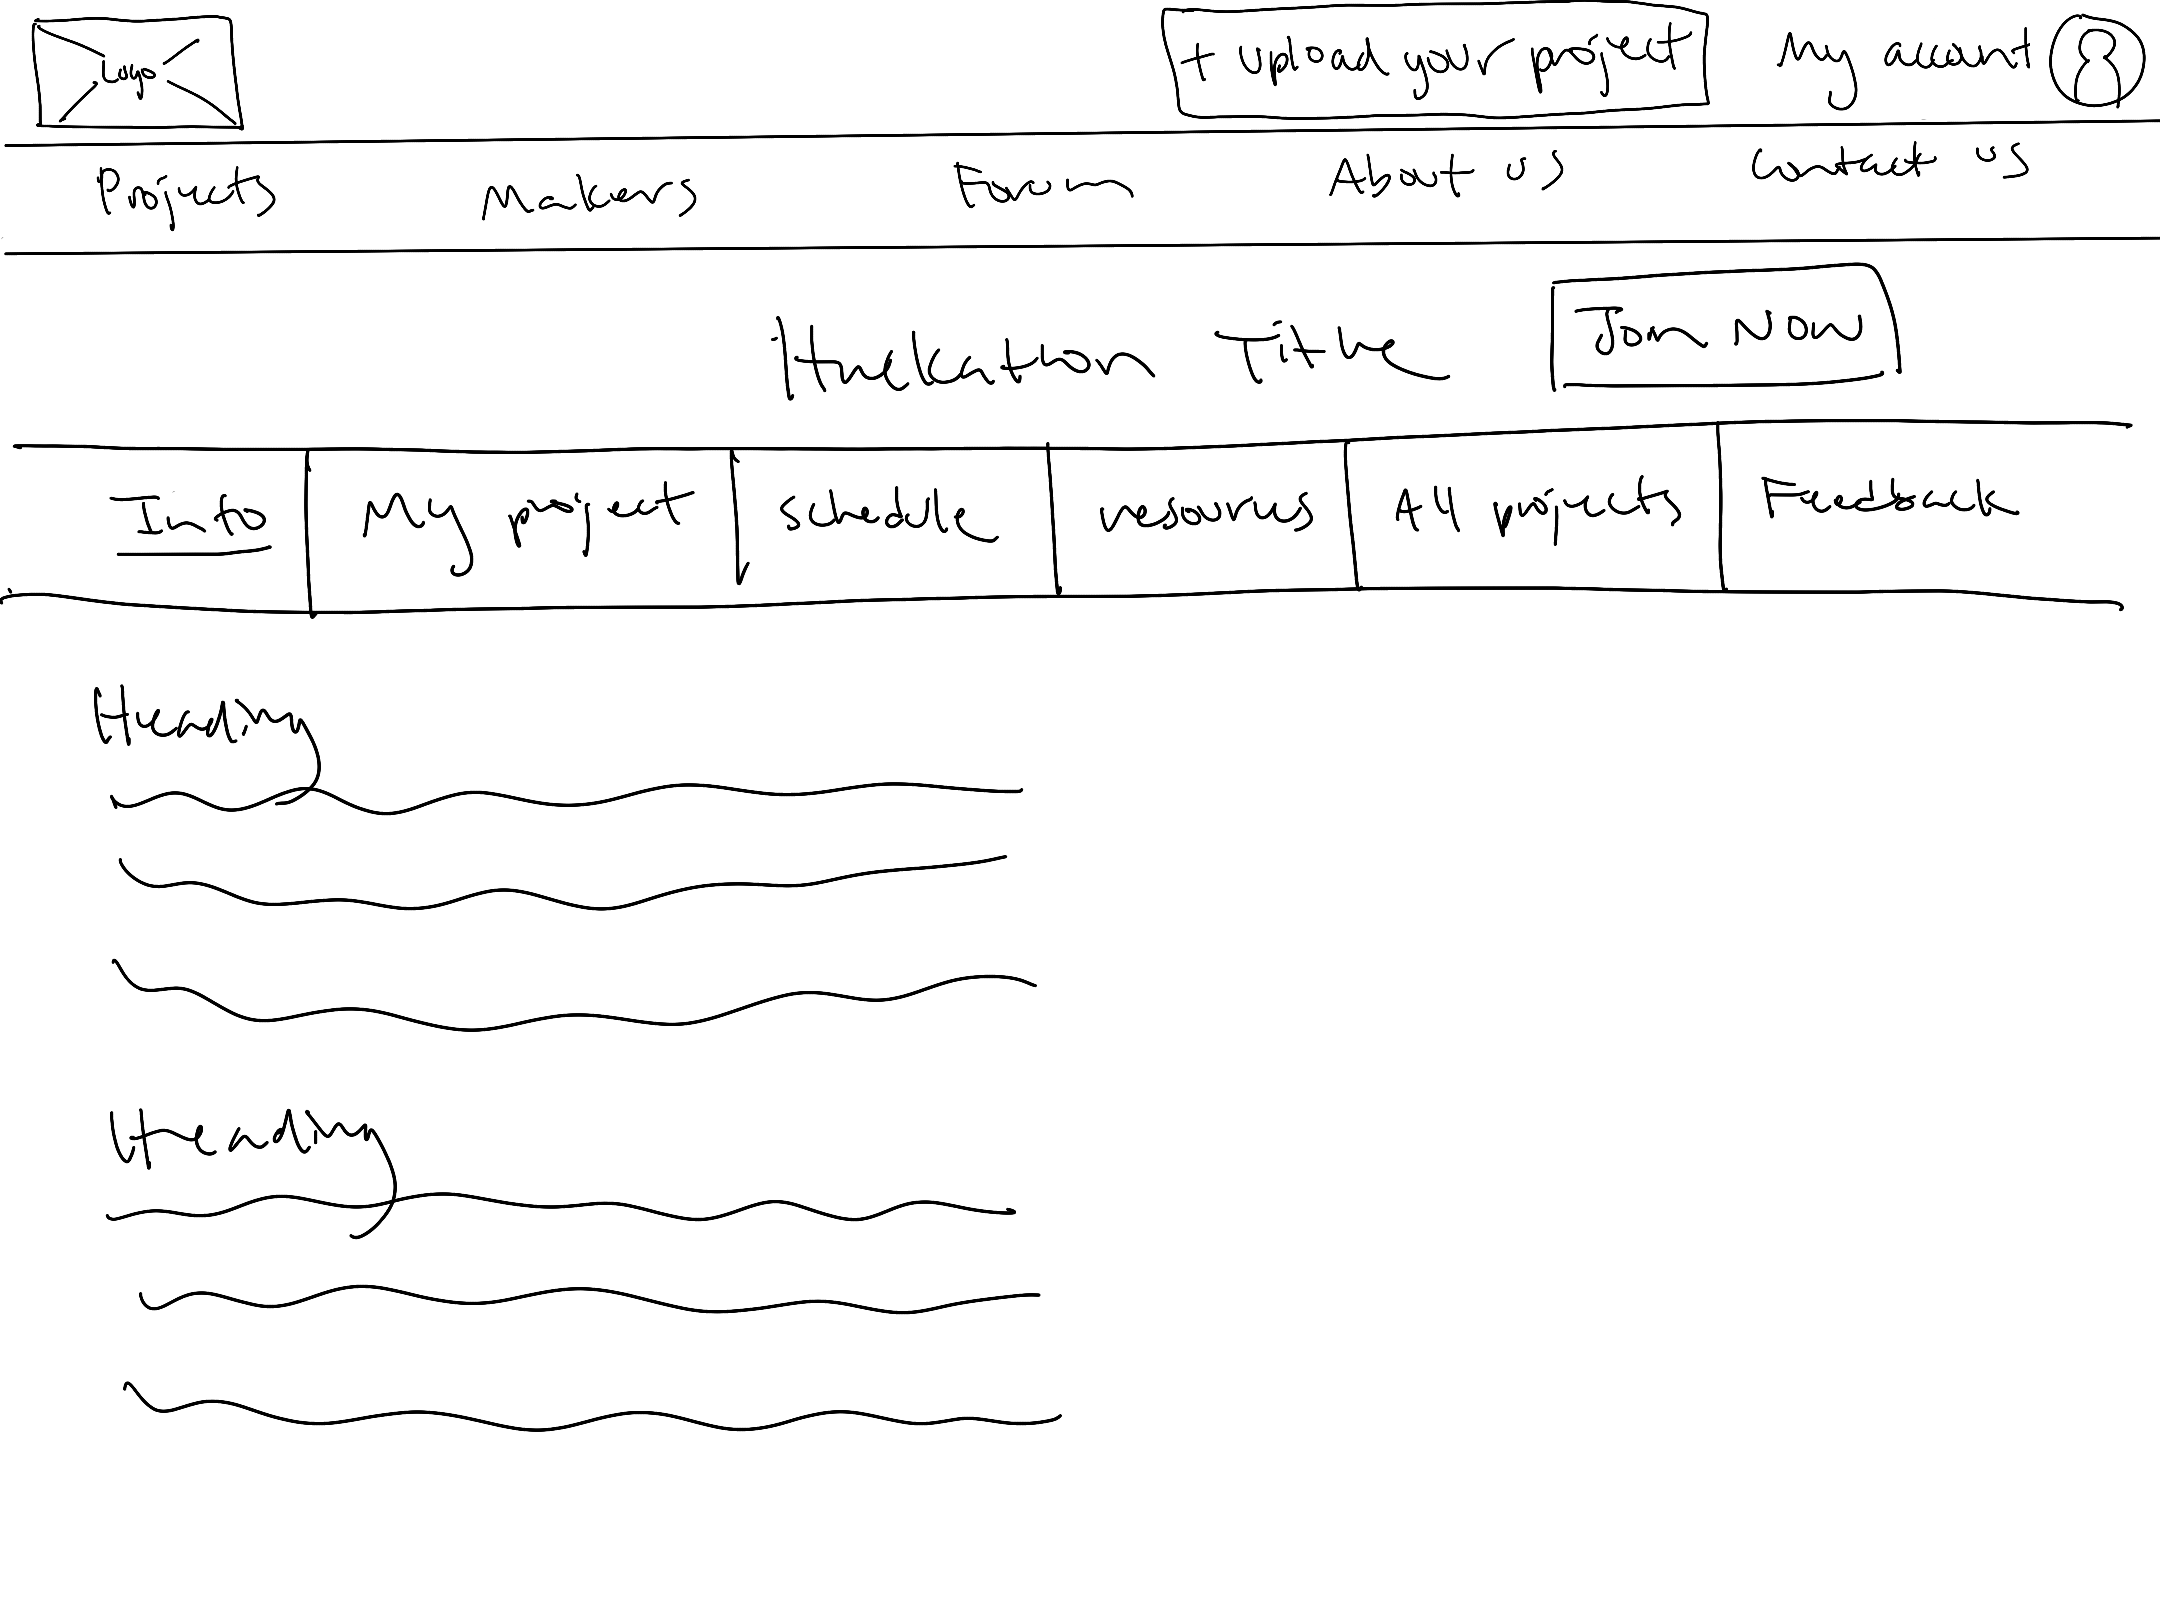 Logo
+ upload your project
My account
Projects
Makers
Forum
About us
Contact us
Hackathon Title
Join Now
Info
My project
schedule
resources
All projects
Feedback
Heading
Heading